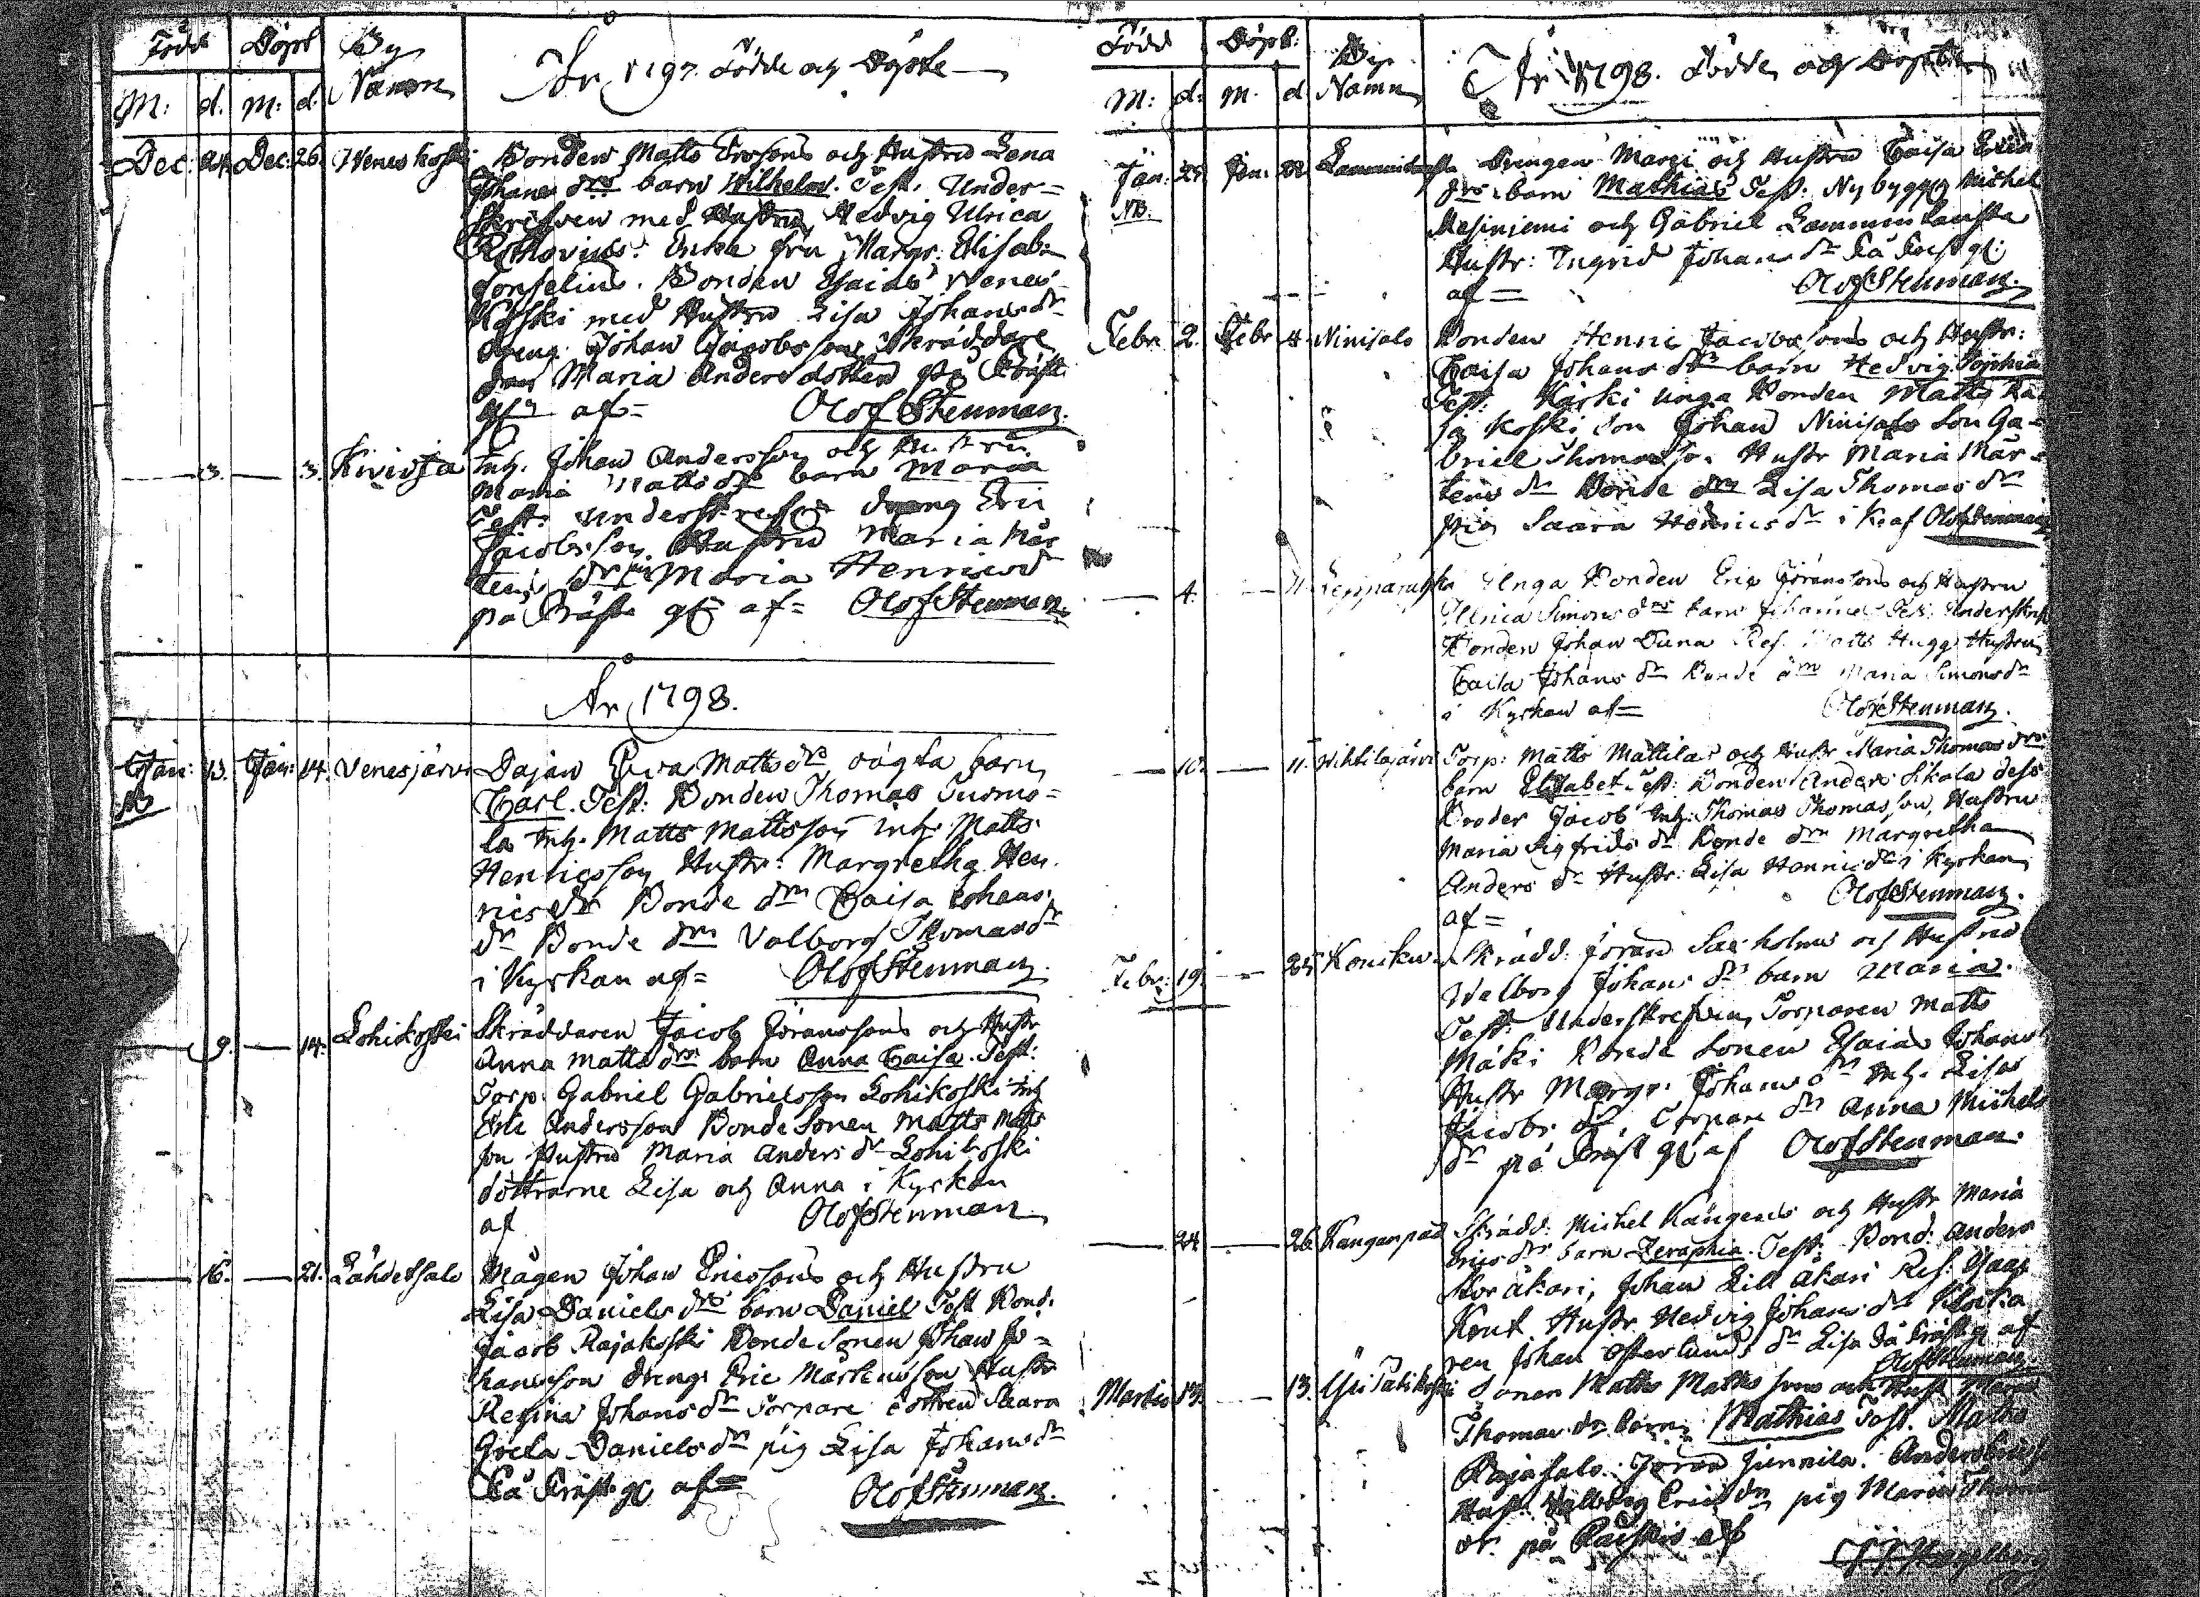 Född Döpt By
M: d. M: d. Namn
År 1797. Födde och Döpte
Dec: 24. Dec: 26. Weneskoski Bonden Matts Ersons och Hustru Lena
Johans drs barn Wilhelm. Test. Under=
skrifven med Hustru Hedvig Ulrica
Enka fru Margr: Elisab:
Bonden Esaias Venes
koski med Hustru Lisa Johansdr
dreng Johan Jacobsson Skräddare
drn Maria Anders dotter på Präst
g: af= Olof Stenman.
3. 3. Kivioja Inh. Johan Andersson och Hustru
Maria Matts drs barn Maria
Test: Underskrefvin dreng Eric
Jacobsson Hustru Maria Mår
tens dr pig Maria Henricsd
på Präste g: af= Olof Stenman.
År 1798.
Jan: 13. Jan: 14. Venesjärvi Dejan Eva Matts drs oägta barn
Carl. Test: Bonden Thomas Tuomo=
la Inh. Matts Mattsson Inh. Matts
Henricsson Hustr: Margretha Hen
rics dr Bonde drn Caisa Johans
dr Bonde drn Valborg Thomasdr
i Kyrkan af= Olof Stenman.
9. 14. Lohikoski Skräddaren Jacob Göranssons och Hustr
Anna Matts drs barn Anna Caisa. Test:
Torp. Gabriel Gabrielsson Lohikoski Inh
Eric Andersson Bonde Sonen Matts Matts
son Hustru Maria Anders dr Lohikoski
döttrarne Lisa och Anna i Kyrkan
af Olof Stenman
16. 21. Lähdetsalo Mågen Johan Ericssons och Hustru
Lisa Daniels drs barn Daniel Test Bond.
Jacob Rajakoski Bonde Sonen Johan Jo=
hansson dreng Eric Mårtensson Hustr
Regina Johansdr Torpare dottren Saara
Greta Danielsdr pig Lisa Johansdr
På Präst. g: af= Olof Stenman.
Född Döpt: By
M: d: M. d Namn
År 1798. Födde och Döpte
Jan: 25 Jan. 28 Drengen och Hustru Caisa
NB. drs barn Mathias Test. Nybyggg Michel
Vesiniemi och Gabriel Lammintausta
Hustr: Ingrid Johans dr På Prest g:
af= Olof Stenman.
Febr 2. Febr 4. Ninisalo Bonden Henric Jacobssons och Hustr:
Caisa Johans drs barn Hedvig Sophia
Test: Kärki unga Bonden Matts Ra
ja koski Son Johan Ninisalo Son Ga=
briel Thomasson Hustr Maria Mår=
tens dr Bonde drn Lisa Thomas dr
pig Saara Henricsdr i K: af Olof Stenman
4. 11. Leppäruhka Unga Bonden Eric Göranssons och Hustru
Ulrica Simons drs barn Johanna Test: Underskref
Bonden Johan Duna Ref. Matts Hugg Hustru
Caisa Johans dr Bonde drn Maria Simonsdr
i Kyrkan af= Olof Stenman.
10. 11. Vihtilajärvi Torp: Matts Mattilas och Hustr Maria Thomas drs
barn Elisabet. Test: Bonden Anders Sikala dess
Broder Jacob Inh: Thomas Thomasson, Hustru
Maria Sigfrids dr Bonde drn Margretha
Anders dr Hustr: Lisa Henricsdr i Kyrkan
af= Olof Stenman.
Febr: 19. 25. Skrädd: Göran Saxholms och Hustru
Walborg Johans drs barn Maria.
Test: Underskrefvin, Torparen Matts
Mäki Bonde Sonen Esaias Johans
Hustr Margr: Johans dr Inh. Lisa
Jacobs dr, Torpare drn Anna Michels
dr på Präst g: af Olof Stenman.
24. 26. Kanganpää Skrädd: Michel Kangens och Hustr Maria
Erics drs barn Zeraphia. Test: Bond: Anders
Stor äkäri, Johan Lill äkäri Ref: Isaac
Knut Hustr Hedvig Johans dr Klocka
ren Johan Österlunds dr Lisa På Präst g: af
Olof Stenman.
Martii 13. 13. Sonen Matts Matts sons och Hust Maria
Thomas drs barn Mathias Test. Matts
Rajasalo. Göran Junnila. Anders
Hust. Valborg Erics dr, pig Maria Thomas
dr. på af